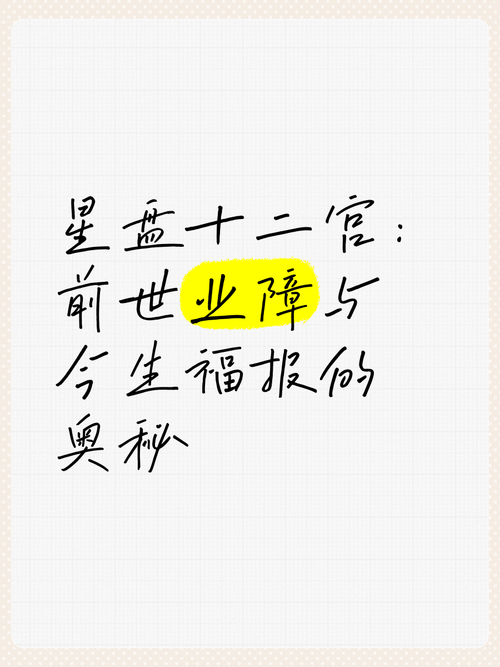 星盘十二宫：
前世业障与
今生福报的
奥秘